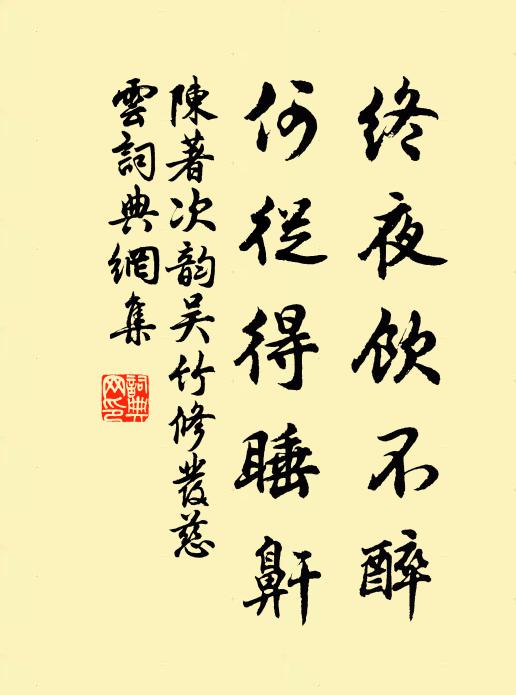 終夜飲不醉
何從得睡鼾
陳著次韵吴竹修發慈
雲詞典網集
詞典網印